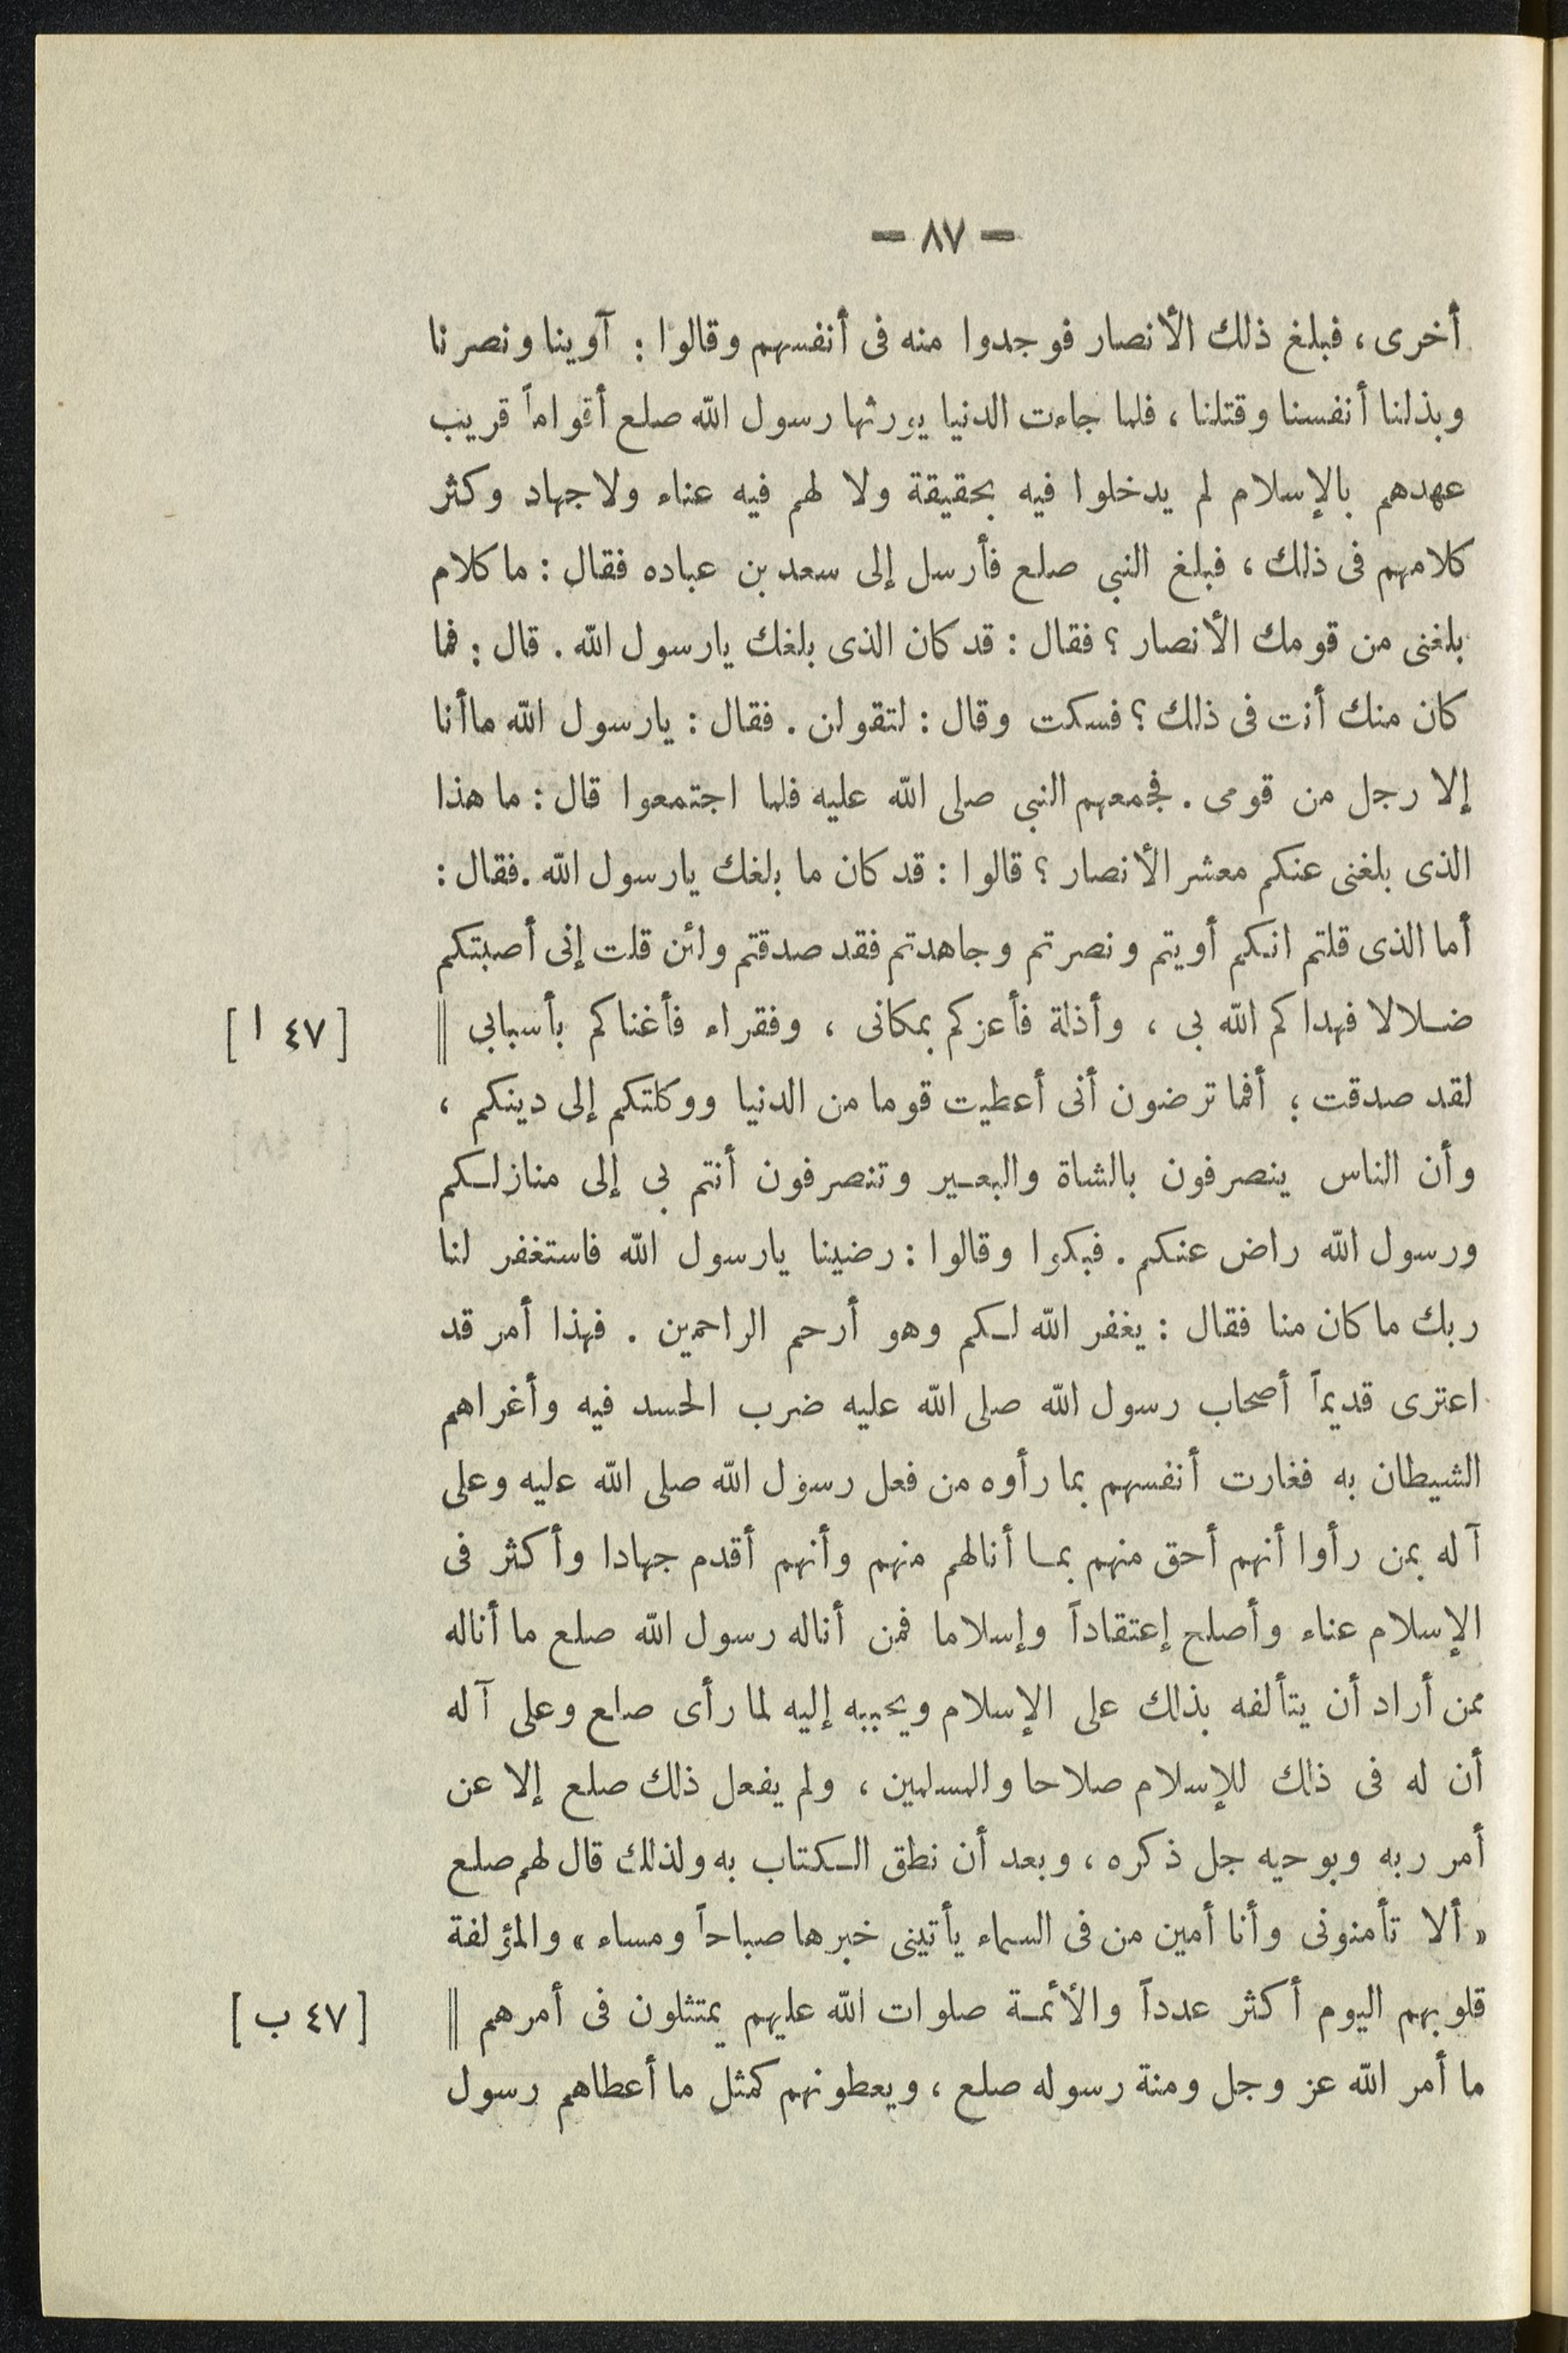 — ٨٧ —
أخرى ، فبلغ ذلك الأنصار فوجدوا منه فى أنفسهم وقالوا : آوينا ونصرنا
وبذلنا أنفسنا وقتلنا ، فلما جاءت الدنيا يورثها رسول الله صلع أقواماً قريب
عهدهم بالإسلام لم يدخلوا فيه بحقيقة ولا لهم فيه عناء ولا جهاد وكثر
كلامهم فى ذلك ، فبلغ النبى صلع فأرسل إلى سعد بن عباده فقال : ما كلام
بلغنى من قومك الأنصار ؟ فقال : قد كان الذى بلغك يارسول الله . قال : فما
كان منك أنت فى ذلك ؟ فسكت وقال : لتقولن . فقال : يارسول الله ماأنا
إلا رجل من قومى . فجمعهم النبى صلى الله عليه فلما اجتمعوا قال : ما هذا
الذى بلغنى عنكم معشر الأنصار ؟ قالوا : قد كان ما بلغك يارسول الله . فقال :
أما الذى قلتم انكم أويتم ونصرتم وجاهدتم فقد صدقتم ولئن قلت إنى أصبتكم
ضلالا فهداكم الله بى ، وأذلة فأعزكم بمكانى ، وفقراء فأغناكم بأسبابى || [ ٤٧ ا ]
لقد صدقت ؛ أفما ترضون أنى أعطيت قوما من الدنيا ووكلتكم إلى دينكم ،
وأن الناس ينصرفون بالشاة والبعير وتنصرفون أنتم بى إلى منازلكم
ورسول الله راض عنكم . فبكوا وقالوا : رضينا يارسول الله فاستغفر لنا
ربك ما كان منا فقال : يغفر الله لكم وهو أرحم الراحمين . فهذا أمر قد
اعترى قديماً أصحاب رسول الله صلى الله عليه ضرب الحسد فيه وأغراهم
الشيطان به فغارت أنفسهم بما رأوه من فعل رسول الله صلى الله عليه وعلى
آله بمن رأوا أنهم أحق منهم بما أنالهم منهم وأنهم أقدم جهادا وأكثر فى
الإسلام عناء وأصلح إعتقاداً وإسلاما فمن أناله رسول الله صلع ما أناله
ممن أراد أن يتألفه بذلك على الإسلام ويحببه إليه لما رأى صلع وعلى آله
أن له فى ذلك للإسلام صلاحا والمسلمين ، ولم يفعل ذلك صلع إلا عن
أمر ربه وبوحيه جل ذكره ، وبعد أن نطق الكتاب به ولذلك قال لهم صلع
« ألا تأمنونى وأنا أمين من فى السماء يأتينى خبرها صباحاً ومساء » والمؤلفة
قلوبهم اليوم أكثر عدداً والأئمة صلوات الله عليهم يمتثلون فى أمرهم || [ ٤٧ ب ]
ما أمر الله عز وجل ومنة رسوله صلع ، ويعطونهم كمثل ما أعطاهم رسول